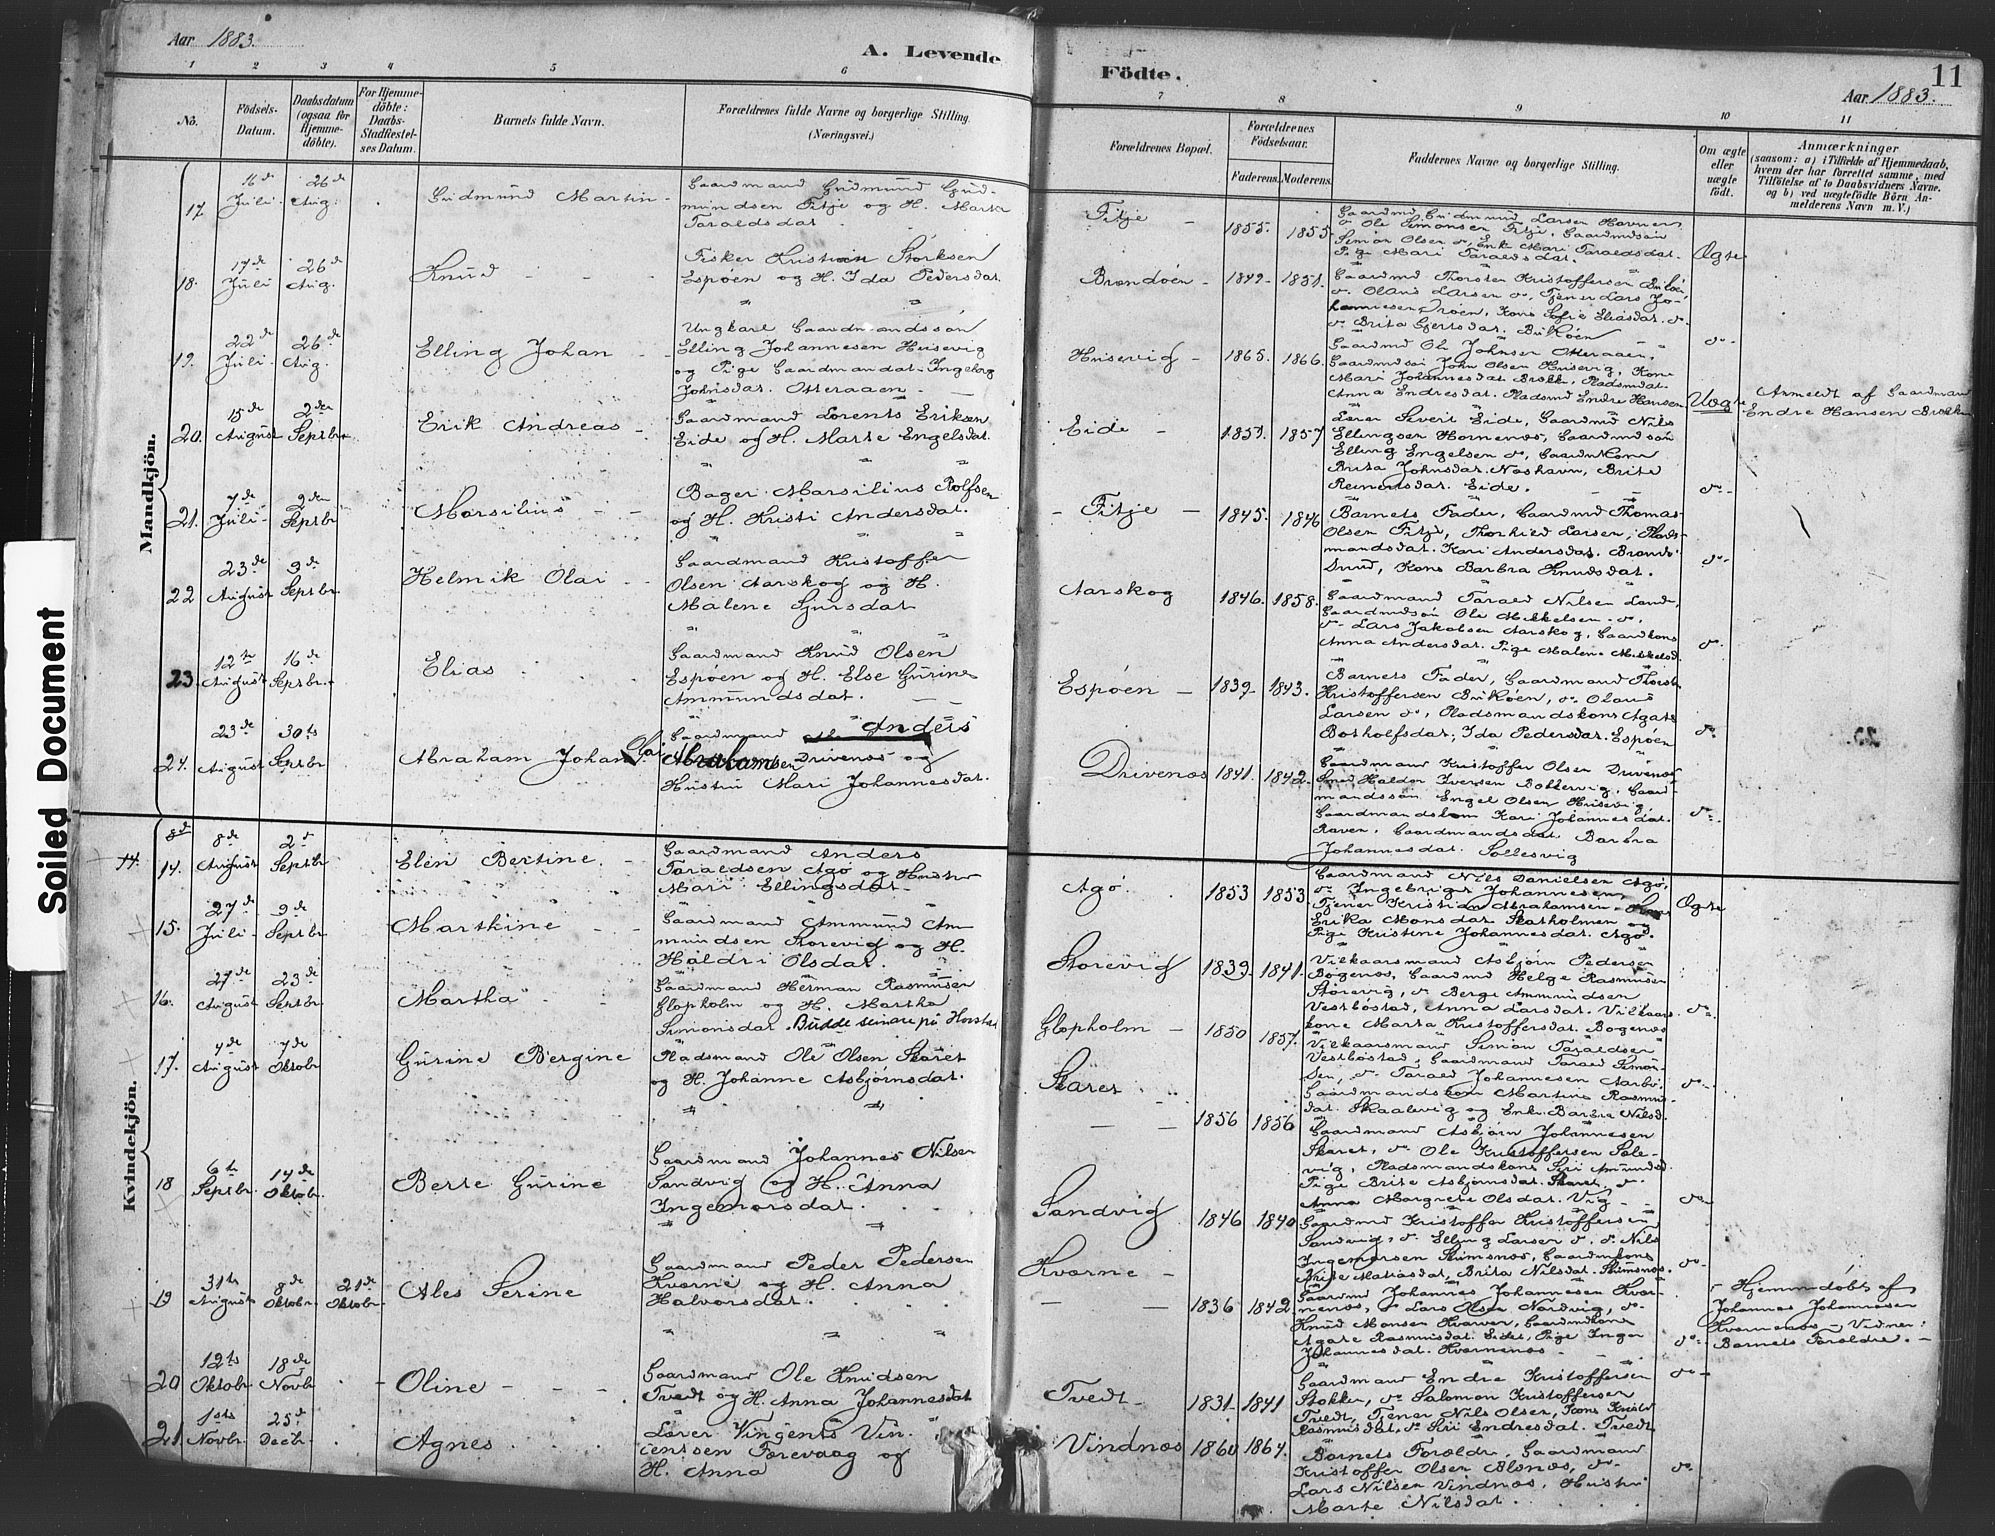 Aar 1883.
A. Levende
Födte.
11
Aar 1883.
1 2 3 4 5 6 7 8 9 10 11
No.
Födsels-
Datum.
Daabsdatum
(ogsaa for
Hjemme-
döbte).
For Hjemme-
döbte:
Daabs-
Stadfæstel-
ses Datum.
Barnets fulde Navn.
Forældrenes fulde Navne og borgerlige Stilling.
(Næringsvei.)
Forældrenes Bopæl.
Forældrenes
Födselsaar.
Faderens. Moderens.
Faddernes Navne og borgerlige Stilling.
Om ægte
eller
uægte
födt.
Anmærkninger
(saasom: a) i Tilfælde af Hjemmedaab,
hvem der har forrettet samme, med
Tilföielse af to Daabsvidners Navne,
og b) ved uægtefödte Börn An-
melderens Navn m. V.)
Mandkjön.
17. 16de Juli 26de Aug. Gudmund Martin
Gaardmand Gudmund Gud-
mundsen Fitje og H. Marta
Taraldsdat
Fitje 1855. 1855.
Gaardmd Gudmund Larsen Havnen,
do Ole Simonsen Fitje, Gaardmdsön
Simon Olsen do, Enke Mari Taraldsdat.
Pige Mari Taraldsdat.
Ægte
18. 17de Juli 26de Aug. Knud
Fisker Kristian Störksen
Espöen og H. Ida Pedersdat.
Brandöen 1842 1851.
Gaardmd Thorsten Kristoffersen Buköen
do Olaus Larsen do, Tjener Lars Jo-
hannesen Dröen, Kone Sofie Eliasdat. do
do Brita Gjertsdat. Buköen
do
19. 22de Juli 26de Aug. Elling Johan
Ungkarl Gaardmandssön
Elling Johannesen Husevig
og Pige Gaardmandat. Ingeborg
Johnsdat. Otteraaen
Husevig 1865. 1866.
Gaardmd Ole Johnsen Otteraaen,
Gaardmdsön John Olsen Husevig, Kone
Mari Johannesdat. Brække, Pladsmdat.
Anna Endresdat. Pladsmd Endre Hansen
Uægte
Anmeldt af Gaardmand
Endre Hansen Brække
20. 15de August 2den Septbr. Erik Andreas
Gaardmand Lorents Eriksen
Eide og H. Marte Engelsdat.
Eide 1857. 1857
Lærer Severt Eide, Gaardmd Nils
Ellingsen Hornenæs, Gaardmdsön
Elling Engelsen do, Gaardmkone
Brita Johnsdat. Næshavn, Brite
Reinertsdat. Eide.
do
21. 7de Juli 2den Septbr Marsilius
Bager Marsilius Rolfsen
og H. Kristi Andersdat.
Fitje 1845. 1846
Barnets Fader, Gaardmd Thomas
Olsen Fitje, Thorkild Larsen, Plads-
mandsdat. Kari Andersdat. Brands-
sund, Kone Barbra Knudsdat.
do
22 23de August 9de Septbr. Helmik Olai
Gaardmand Kristoffer
Olsen Aarskog og H.
Malene Sjursdat
Aarskog 1846. 1858.
Gaardmand Tarald Nilsen Lande,
Gaardmdsön Ole Mikkelsen do,
do Lars Jakobsen Aarskog, Gaardkone
Anna Andersdat. Pige Malene Mikkelsd.
do
23. 12te August 16de Septbr. Elias
Gaardmand Knud Olsen
Espöen og H. Else Gurine
Ammundsdat.
Espöen 1839 1843.
Barnets Fader, Gaardmand Thorsten
Kristoffersen Buköen, do Olaus
Larsen do, Pladsmandskone Agate
Botholfsdat, Ida Pedersdat. Espöen
do
24. 23de August 30te Septbr Abraham Johan Olai
Gaardmand Anders
Abrahamsen Drivenæs og
Hustru Mari Johannesdat.
Drivenæs 1841. 1842
Gaardmand Kristoffer Olsen Drivenæs
Smed Haldor Iversen Bottervig, Gaard-
mandssön Engel Olsen Husevig,
Gaardmandskone Kari Johannesdat.
Raven, Gaardmandsdat. Barbra
Johannesdat. Sollesvig
do
Kvindekjön.
14. 8de August 2d Septbr Elen Bertine
Gaardmand Anders
Taraldsen Agö og Hustru
Mari Ellingsdat
Agö. 1853 1853
Gaardmand Nils Danielsen Agö,
do Ingebrigt Johannesen,
Tjener Kristian Abrahamsen,
Erika Monsdat. Skatholmen og
Pige Kristine Johannesdat. Agö.
Ægte
15. 27de Juli 9de Septbr. Marthine
Gaardmand Ammund Am-
mundsen Storevig og H.
Haldri Olsdat.
Storevig 1839 1841.
Vilkaarsmand Asbjörn Pedersen
Bogenæs, Gaardmd Helge Rasmussen
Störevig, do Berge Ammundsen
Vestböstad, Anna Larsdat. Vilkaars-
kone Marta Kristoffersdat. Bogenæs
do
16. 27de August 23de Septbr Martha
Gaardmand Herman Rasmusen
Glopholm og H. Martha
Simonsdat. Budde senare på Horstad
Glopholm 1850 1857.
Vilkaarsmand Simon Taraldsen
Vestböstad, Gaardmand Tarald Simon-
sen, do Tarald Johannesen Aarbö,
Gaardmandskone Martine Rasmus-
dat. Skaalevig og Enke Barbra Nilsd.
do
17. 4de August 7de Oktobr Gurine Bergine
Pladsmand Ole Olsen Skaret
og H. Johanne Asbjörnsdat.
Skaret 1856 1856
Gaardmand Asbjörn Johannesen
Skaret, do Ole Kristoffersen Sole-
vig, Pladsmandskone Siri Amundsd.
Pige Brite Asbjörnsdat. Skaret, do
Anna Margrete Olsdat. Vig
do
18 6te Septbr. 14de Oktobr. Berte Gurine
Gaardmand Johannes Nilsen
Sandvig og H. Anna
Ingemarsdat.
Sandvig 1846 1840
Gaardmd Kristoffer Kristoffersen
Sandvig, do Elling Larsen do, do Nils
Ingemarsen Skimsnæs, Gaardmkone
Brite Matiasdat, Brita Nilsdat. Skimsnæs.
do
19 31te August 8de Oktobr. 21de Oktobr. Ales Serine
Gaardmand Peder Pedersen
Kværne og H. Anna
Halvorsdat.
Kværne 1836 1842
Gaardmd Johannes Johannesen Kvær-
nenæs, do Lars Olsen Nordvig, do
Knud Monsen Kværne, Gaardmkone
Agate Rasmusdat. Eidet, Pige Inger
Johannesdat. Kværnenæs
do
Hjemmedöbt af
Johannes Johannesen
Kværnenæs. Vidner:
Barnets Forældre.
20 12te Oktobr 18de Novbr Oline
Gaardmand Ole Knudsen
Tvedt og H. Anna Johannesdat
Tvedt 1831 1841
Gaardmand Endre Kristoffersen
Stokker, do Salomon Kristoffersen
Tvedt, Tjener Nils Olsen, Kone Kristi
Rasmusdat, do Siri Endresdat. Tvedt
do
21. 1ste Novbr. 25de Decbr. Agnes
Lærer Vingents Vin-
centsen Forevaag og
H. Anna
Vindnæs 1860 1864.
Barnets Forældre, Gaardmand
Kristoffer Olsen Blonæs, do
Lars Nilsen Vindnæs, Hustru
Marte Nilsdat.
do
Soiled Document